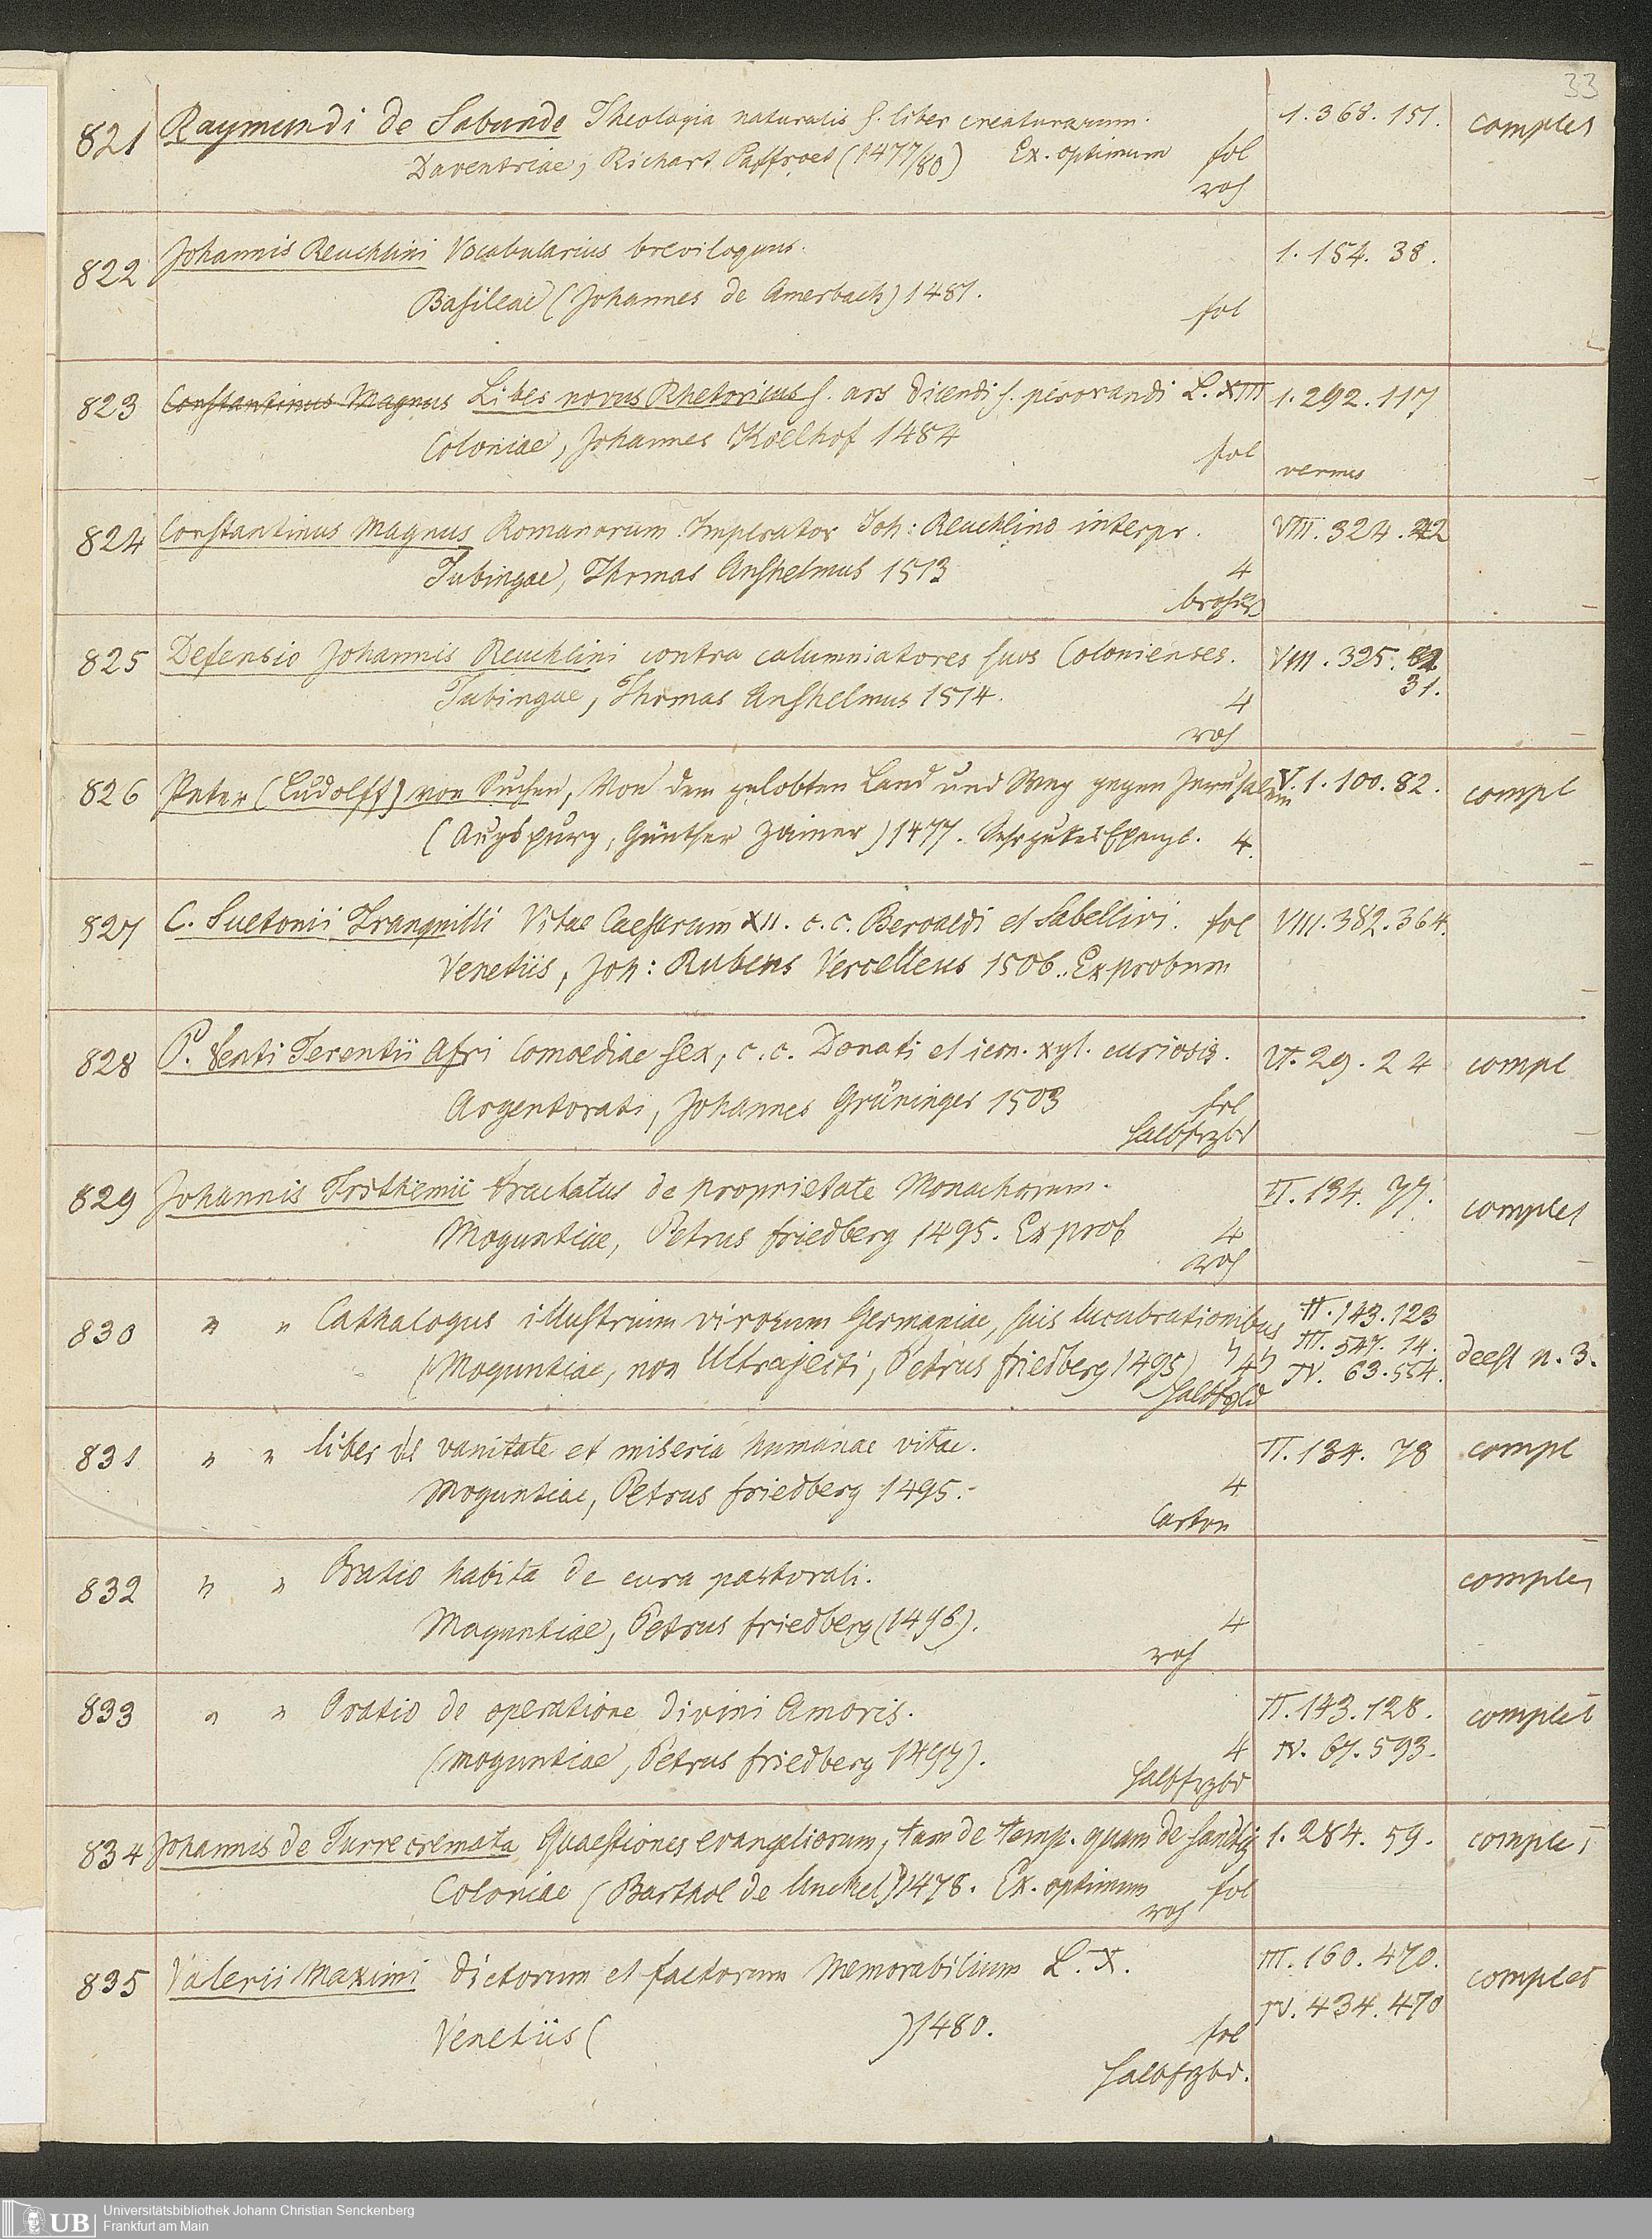 33
821 Raymundi de Sabunde Theologia naturalis s. liber creaturarum. 1. 368. 151. complet
Daventriae, Richart Paffroet (1477/80) Ex. optimum fol
roh
822 Johannis Reuchlini Vocabularius breviloquus. 1. 154. 38.
Basileae (Johannes de Amerbach) 1481. fol
823 Constantinus Magnus Liber novus Rhetoricus s. ars dicendi s. perorandi L. XIII 1. 292. 117
Coloniae, Johannes Koelhof 1484 fol vermis
824 Constantinus Magnus Romanorum Imperator Joh: Reuchlino interpr. VIII. 324. 22
Tubingae, Thomas Anshelmus 1513 4
broshirt
825 Defensio Johannis Reuchlini contra calumniatores suos Colonienses. VIII. 325.
31.
Tubingae, Thomas Anshelmus 1514. 4
roh
826 Peter (Ludolff) von Suchen, Von dem gelobten Land und Weg gegen Jerusalem V. 1. 100. 82. compl
(Augspurg, Günther Zainer) 1477. Sehr gutes Exempl. 4.
827 C. Suetonii Tranquilli Vitae Caesarum XII. c. c. Beroaldi et Sabellici. fol VIII. 382. 364.
Venetiis, Joh: Rubens Vercelleus 1506. Ex probum
828 P. Terentii Afri Comoediae sex, c. c. Donati et icon. xyl. curiosis. VI. 29. 24 compl
Argentorati, Johannes Grüninger 1503 fol
Halbfrzbd
829 Johannis Trithemii tractatus de proprietate Monachorum. II. 134. 77. complet
Moguntiae, Petrus Friedberg 1495. Ex prob 4
roh
830 " " Cathalogus illustrium virorum Germaniae, suis lucubrationibus II. 143. 123
III. 547. 14.
(Moguntiae, non Ultrajecti, Petrus Friedberg 1495) 4 IV. 63. 554. deest n. 3.
Halbfrzbd
831 " " liber de vanitate et miseria humanae vitae. II. 134. 78 compl
Moguntiae, Petrus Friedberg 1495. 4
Carton
832 " " Oratio habita de cura pastorali. complet
Maguntiae, Petrus Friedberg (1496). 4
roh
833 " " Oratio de operatione divini Amoris. II. 143. 128. complet
(Moguntiae, Petrus Friedberg 1497). 4 IV. 67. 593.
Halbfrzbd
834 Johannis de Turrecremata Quaestiones evangeliorum, tam de temp. quam de sanctis 1. 284. 59. complet
Coloniae (Barthol de Unckel) 1478. Ex. optimum fol
roh
835 Valerii Maximi dictorum et factorum Memorabilium L. X. III. 160. 470. complet
IV. 434. 470
Venetiis ( ) 1480. fol
Halbfrzbd.
UB Universitätsbibliothek Johann Christian Senckenberg
Frankfurt am Main